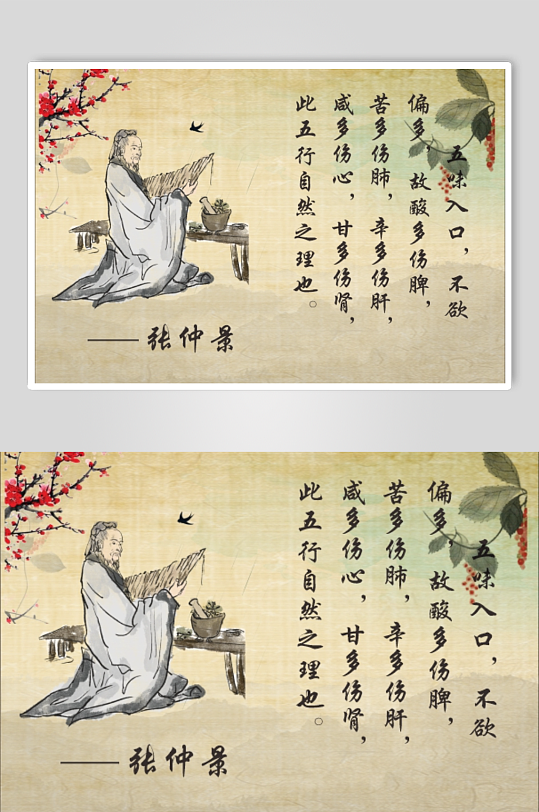 五味入口，不欲
偏多，故酸多伤脾，
苦多伤肺，辛多伤肝，
咸多伤心，甘多伤肾，
此五行自然之理也。
——张仲景
五味入口，不欲
偏多，故酸多伤脾，
苦多伤肺，辛多伤肝，
咸多伤心，甘多伤肾，
此五行自然之理也。
——张仲景